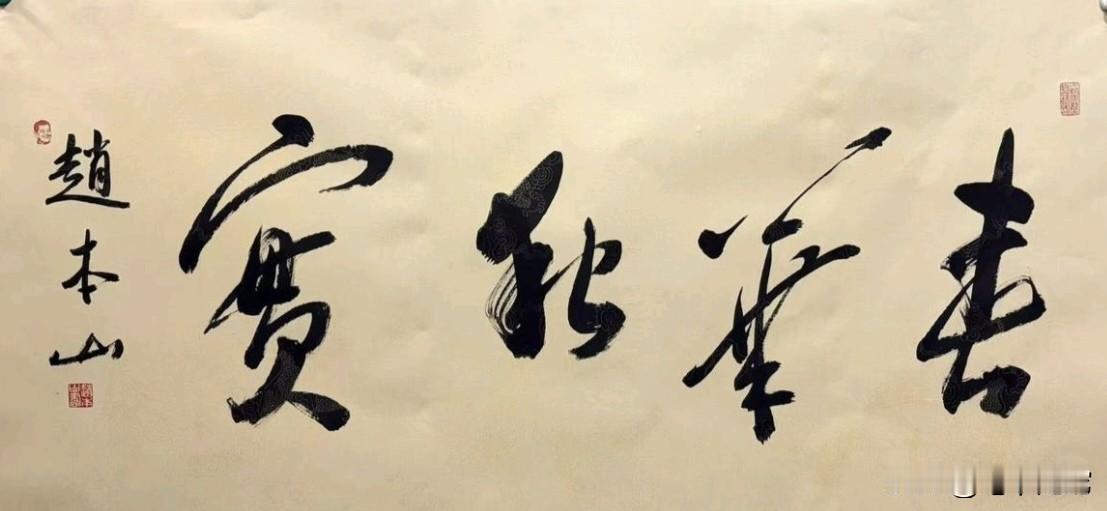 春華秋實
趙本山